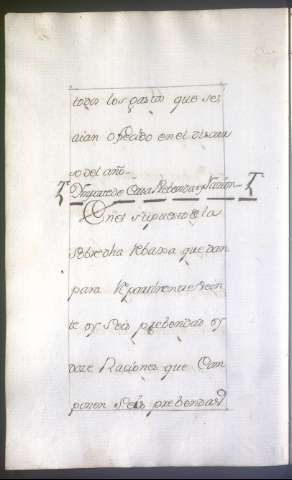 todos los gastos que se
aian ofrecido en el discur
so del año.
de Cada Prebenda y Racion
En el supuesto de la
sobredha Rebaxa quedan
para Repartirse vein
te y seis prebendas y
doze Raciones que com
ponen seis prebendas